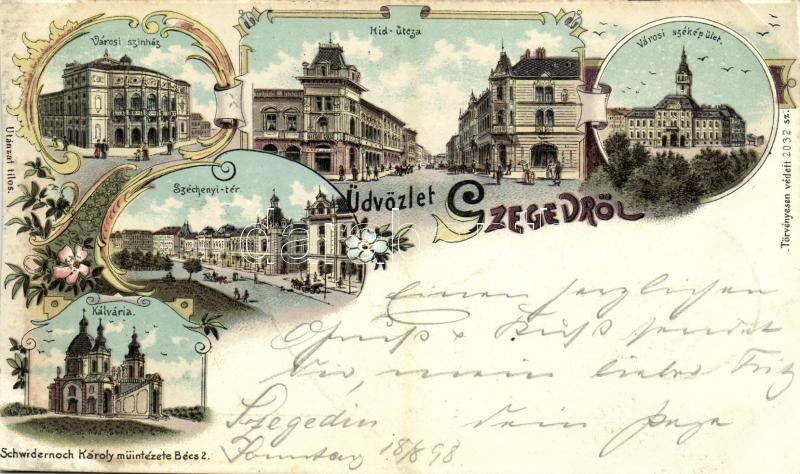 Városi szinház
Hid-útcza
Városi széképület.
Utánzat tilos.
Széchenyi-tér.
Üdvözlet Szegedről
Törvényesen védett 2032 sz.
Kálvária.
Einen herzlichen
Gruß & Kuß sendet
Dir, mein lieber Fritz
Szegedin dein Papa
Sonntag 18/8 98
Schwidernoch Károly müintézete Bécs 2.